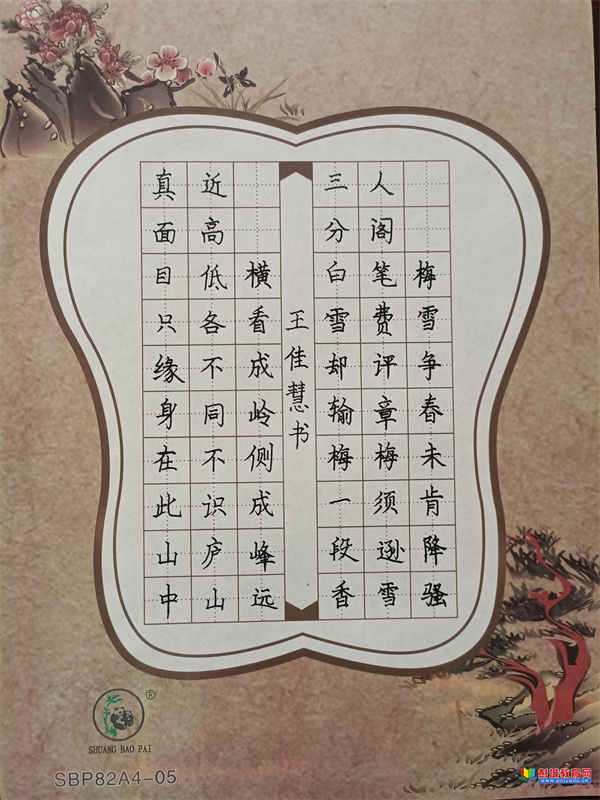 梅雪争春未肯降骚
人阁笔费评章梅须逊雪
三分白雪却输梅一段香
王佳慧书
横看成岭侧成峰远
近高低各不同不识庐山
真面目只缘身在此山中
®
SHUANG BAO PAI
SBP82A4-05
彭城教育网